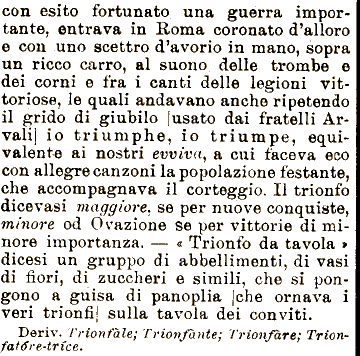 con esito fortunato una guerra impor-
tante, entrava in Roma coronato d'alloro
e con uno scettro d'avorio in mano, sopra
un ricco carro, al suono delle trombe e
dei corni e fra i canti delle legioni vit-
toriose, le quali andavano anche ripetendo
il grido di giubilo |usato dai fratelli Ar-
vali| io triumphe, io triumpe, equi-
valente ai nostri evviva, a cui faceva eco
con allegre canzoni la popolazione festante,
che accompagnava il corteggio. Il trionfo
dicevasi maggiore, se per nuove conquiste,
minore od Ovazione se per vittorie di mi-
nore importanza. — « Trionfo da tavola »
dicesi un gruppo di abbellimenti, di vasi
di fiori, di zuccheri e simili, che si pon-
gono a guisa di panoplia |che ornava i
veri trionfi| sulla tavola dei conviti.
Deriv. Trionfàle; Trionfànte; Trionfàre; Trion-
fatóre-trice.